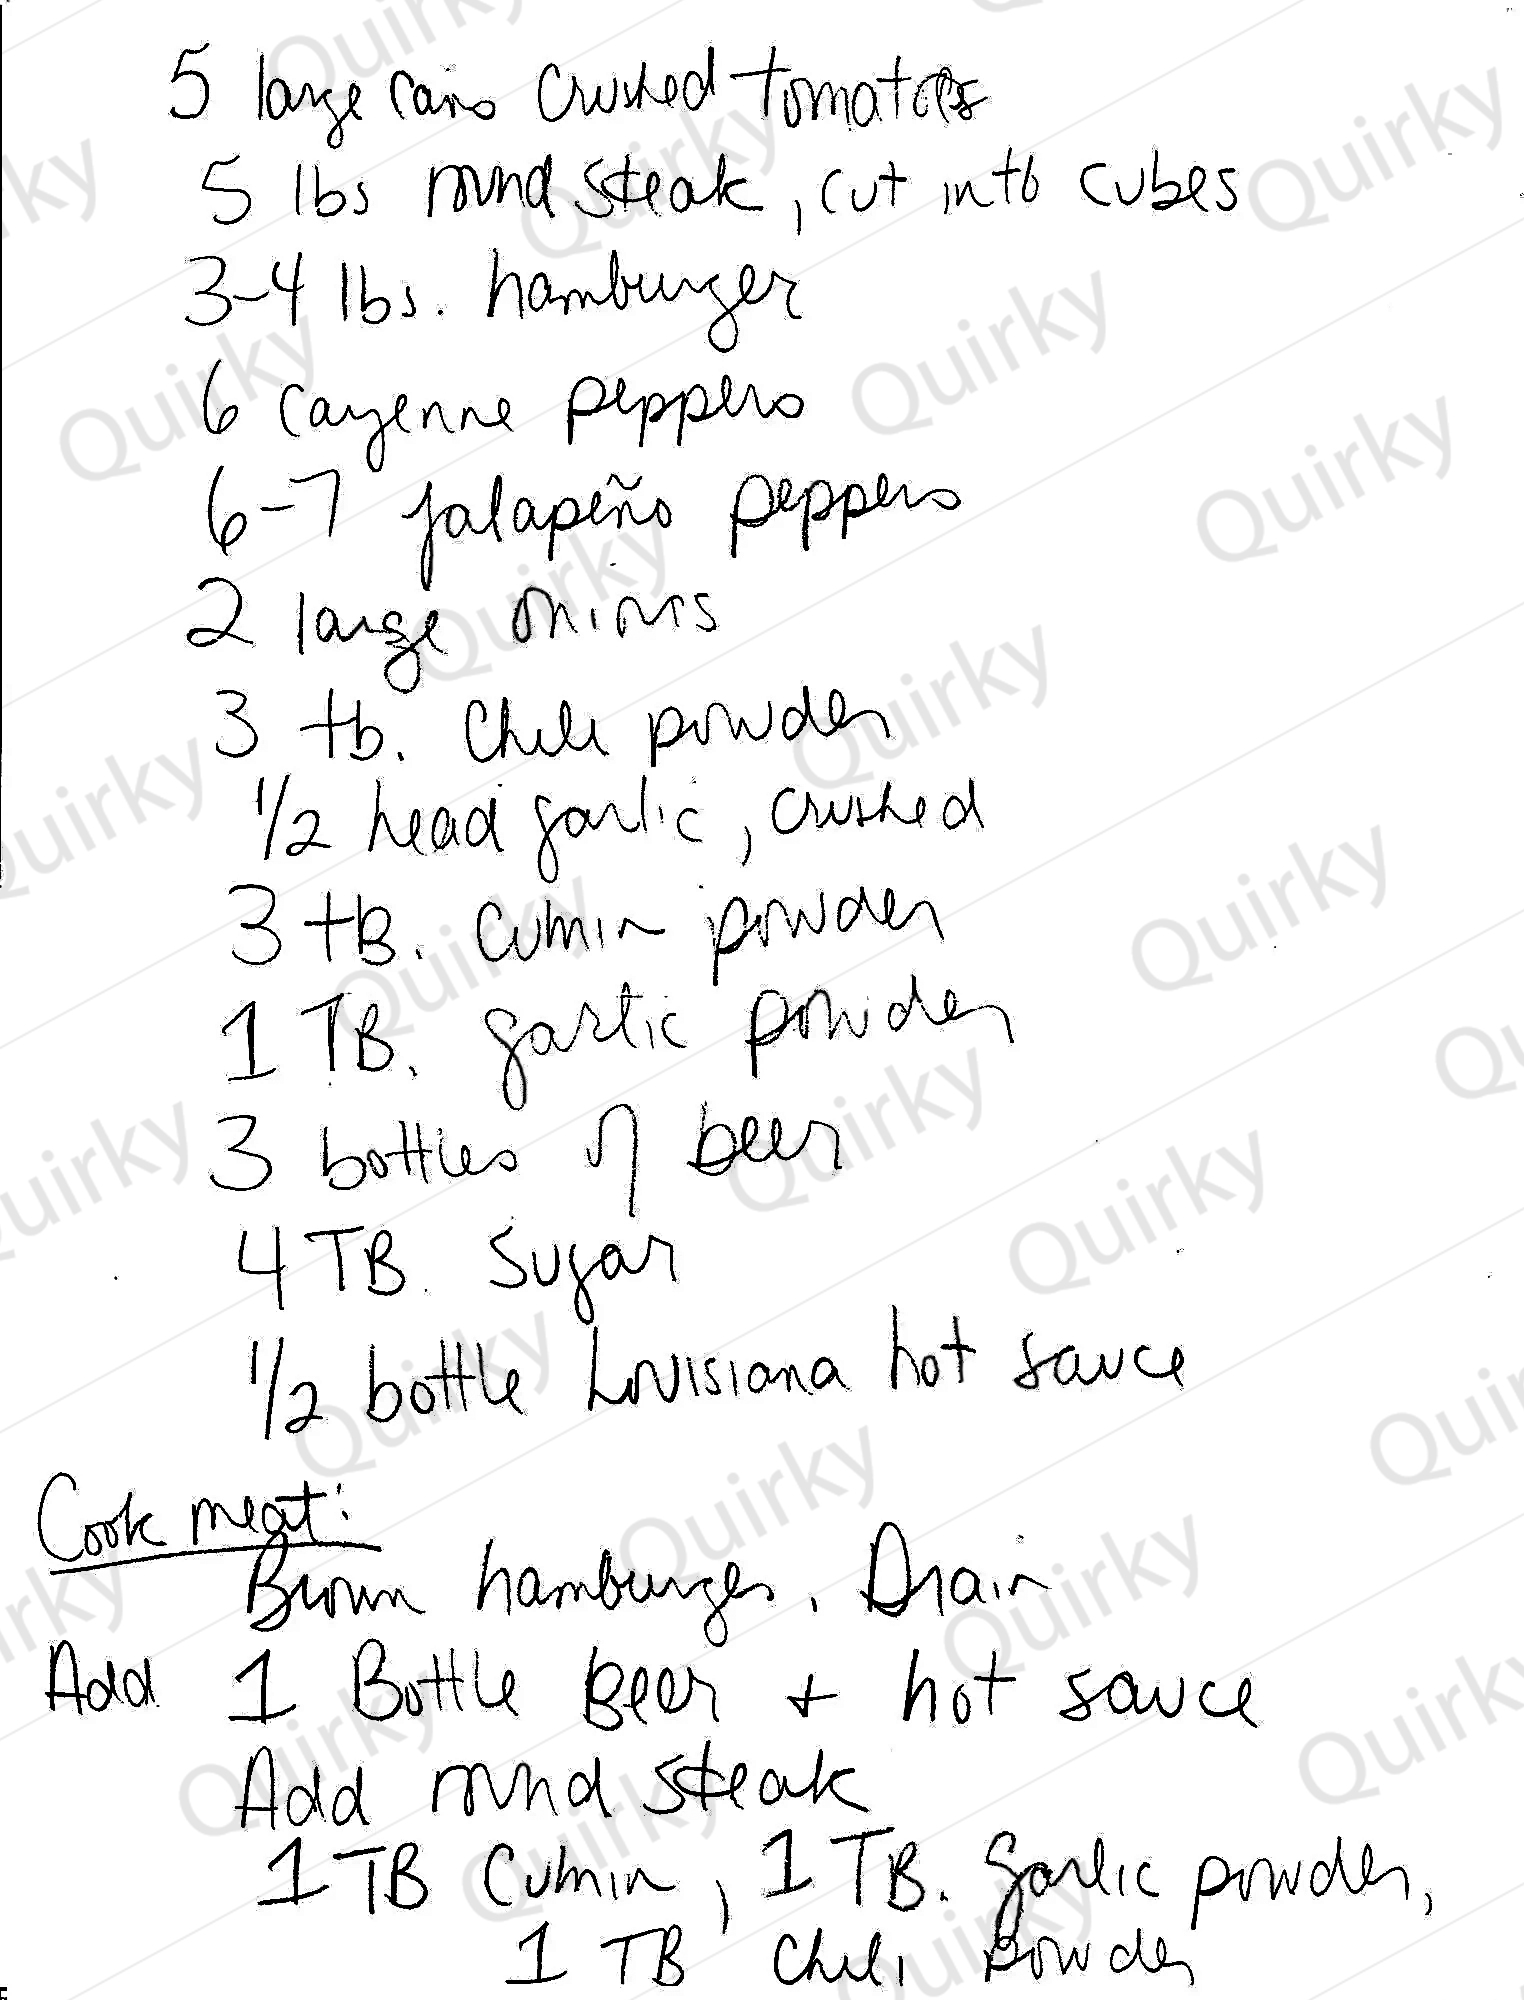 5 large cans crushed tomatoes
5 lbs round steak, cut into cubes
3-4 lbs. hamburger
6 cayenne peppers
6-7 jalapeño peppers
2 large onions
3 tb. chili powder
1/2 head garlic, crushed
3 tB. cumin powder
1 TB. garlic powder
3 bottles of beer
4 TB. sugar
1/2 bottle Louisiana hot sauce
Cook meat:
Brown hamburger. Drain
Add 1 Bottle Beer + hot sauce
Add round steak
1 TB Cumin, 1 TB. garlic powder,
1 TB Chili Powder